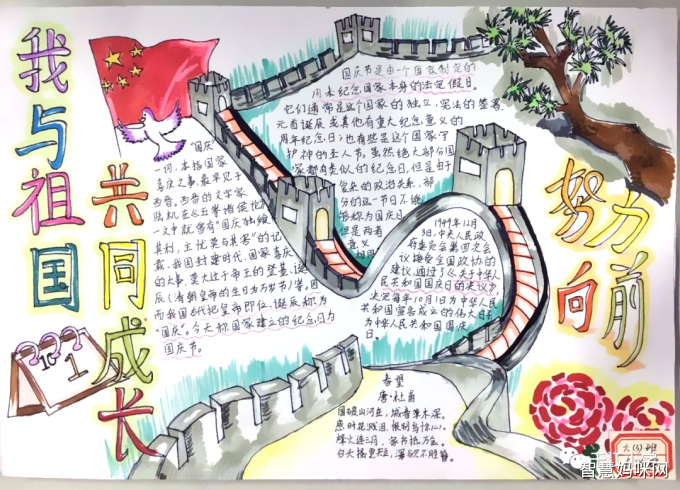 我与祖国
共同成长
努力向前
国庆节是由一个国家制定的
用来纪念国家本身的法定假日。
它们通常是这个国家的独立、宪法的签署、
元首诞辰或其他有重大纪念意义的
周年纪念日；也有些是这个国家守
护神的圣人节。虽然绝大部分国
家都有类似的纪念日，但是由于
复杂的政治关系，部
分的这一节日不能
够称为国庆日
但是两者
意义
相同
"国庆"
一词，本指国家
喜庆之事，最早见于
西晋。西晋的文学家
陆机在《五等诸侯论》
一文中就曾有"国庆独飨
其利，主忧莫与其害"的记
载。我国封建时代、国家喜庆
的大事，莫大过于帝王的登基、诞
辰（清朝皇帝的生日为万岁节）等。因
而我国古代把皇帝即位、诞辰称为
"国庆"。今天称国家建立的纪念日为
国庆节。
1949年12月
3日，中央人民政
府委员会第四次会
议接受全国政协的
建议，通过了《关于中华人
民共和国国庆日的决议》，
决定每年10月1日为中华人民
共和国宣告成立的伟大日子
为中华人民共和国国庆
日。
春望
唐·杜甫
国破山河在，城春草木深。
感时花溅泪，恨别鸟惊心。
烽火连三月，家书抵万金。
白头搔更短，浑欲不胜簪。
10
1
大(3)班
智慧妈咪网